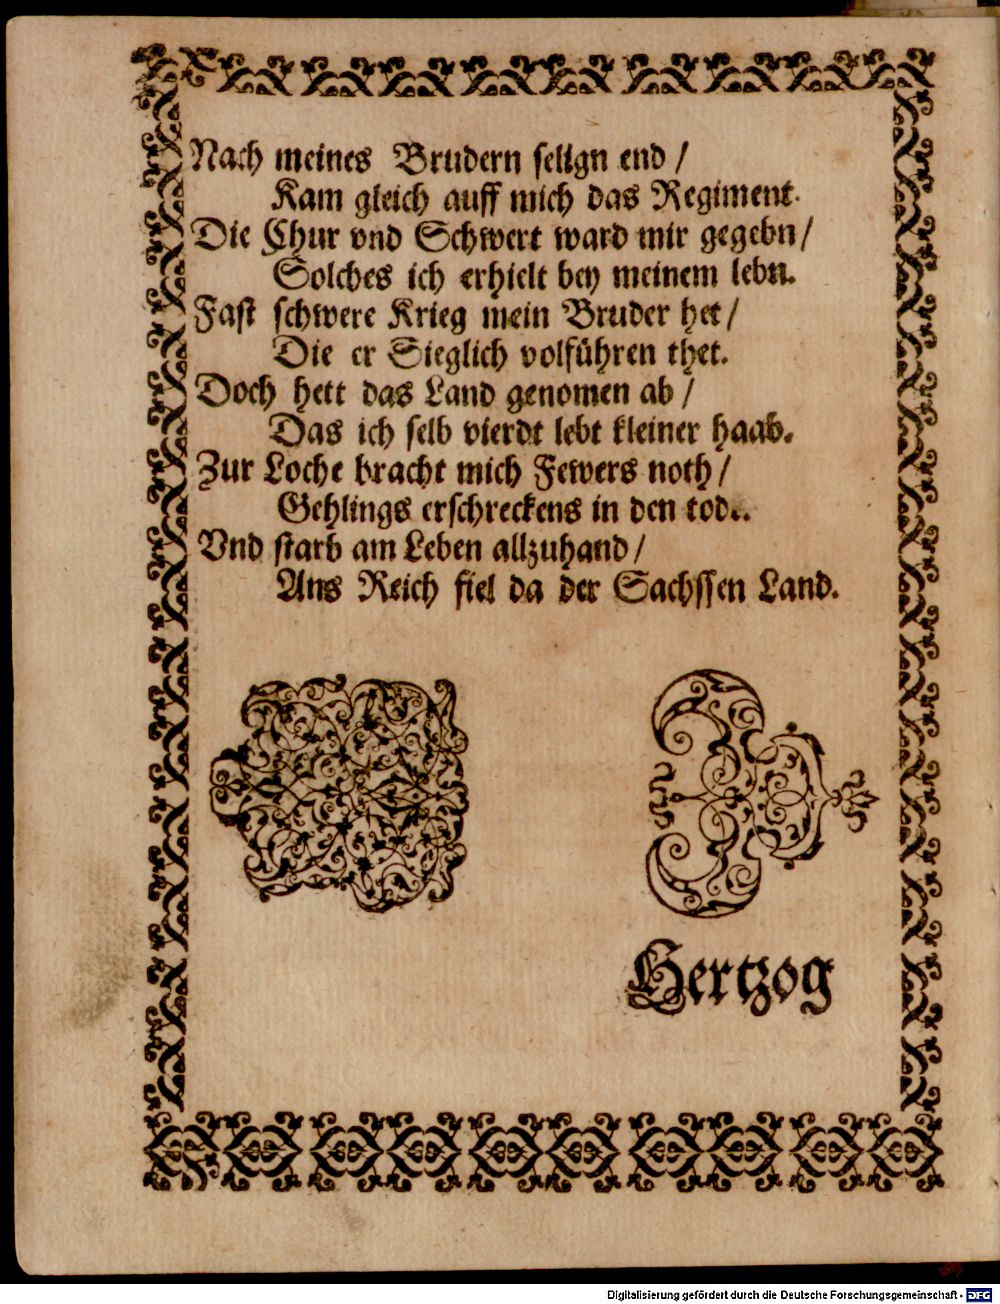 Nach meines Brudern selign end /
Kam gleich auff mich das Regiment.
Die Chur vnd Schwert ward mir gegebn /
Solches ich erhielt bey meinem lebn.
Fast schwere Krieg mein Bruder het /
Die er Sieglich volführen thet.
Doch hett das Land genomen ab /
Das ich selb vierdt lebt kleiner haab.
Zur Loche bracht mich Fewers noth /
Gehlings erschreckens in den tod..
Vnd starb am Leben allzuhand /
Ans Reich fiel da der Sachssen Land.
Hertzog
Digitalisierung gefördert durch die Deutsche Forschungsgemeinschaft - DFG